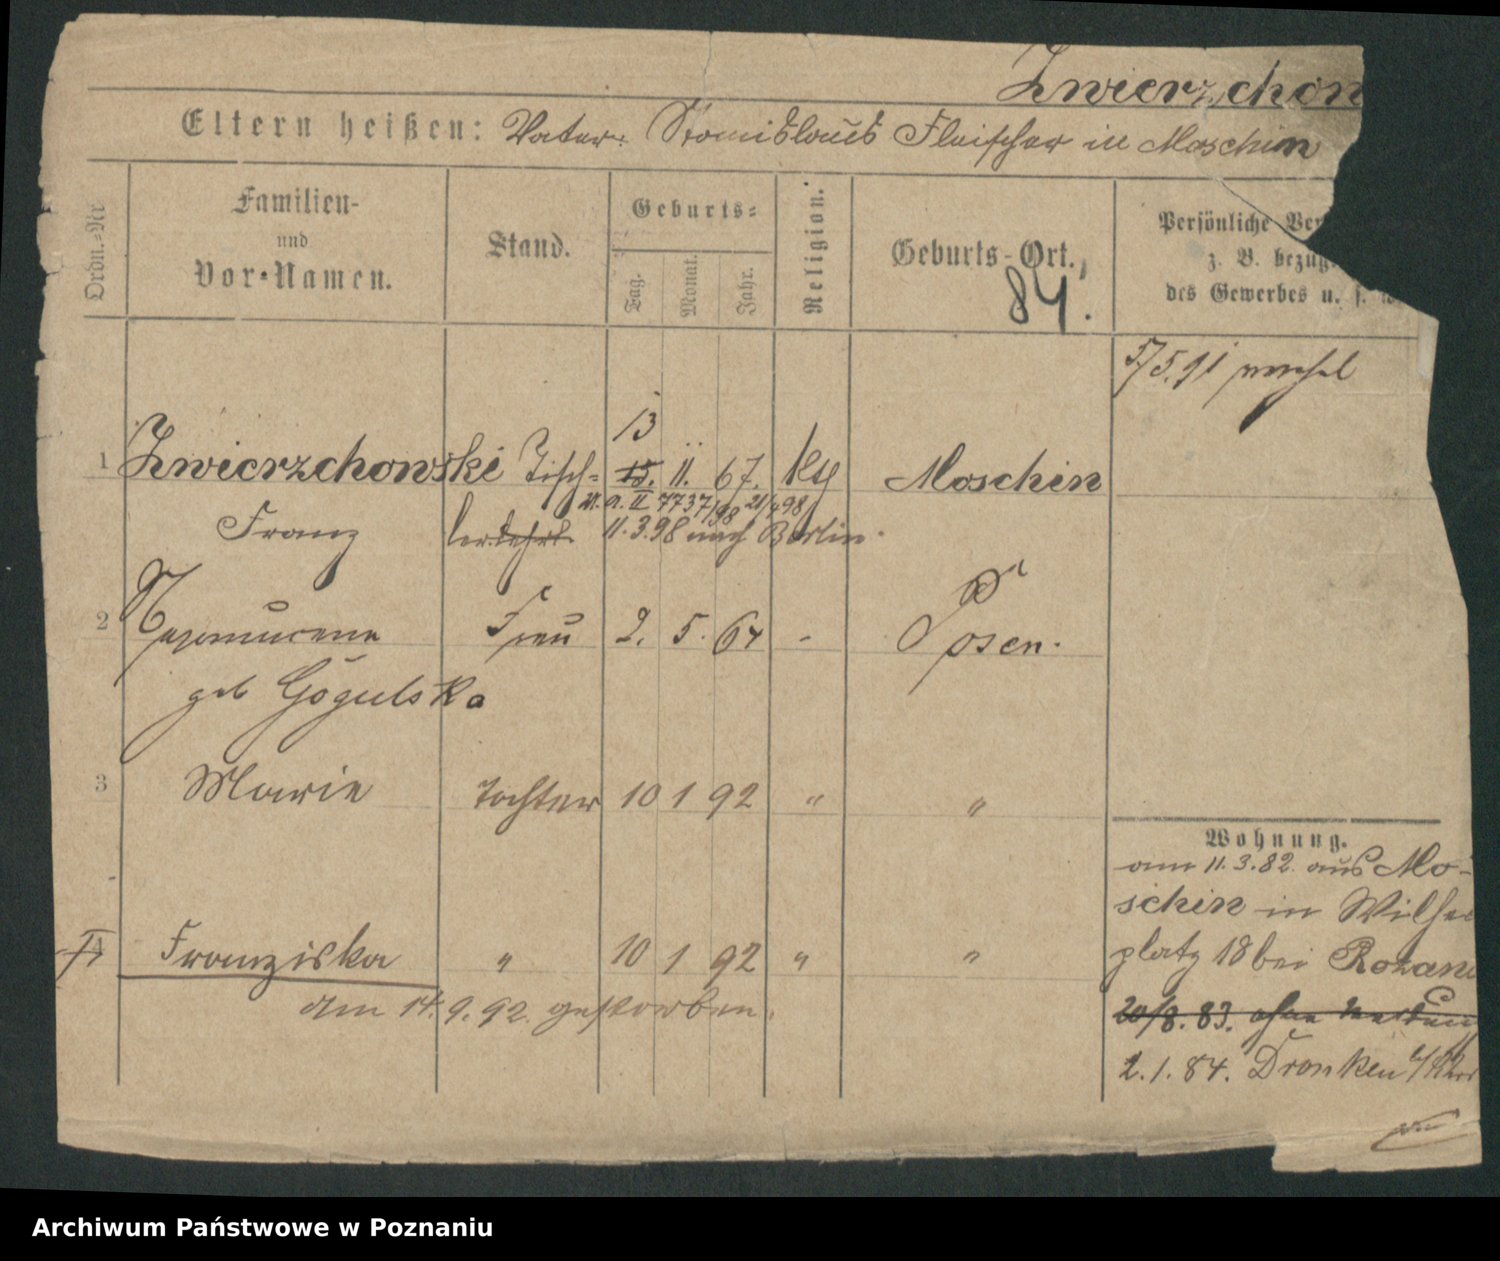 Zwierzchon
Eltern heißen: Vater: Stanislaus Fleischer in Moschin
Ordn.-Nr
Familien-
und
Vor-Namen.
Stand.
Geburts-
Tag.
Monat.
Jahr.
Religion.
Geburts-Ort.
84.
Persönliche Ver
z. B. bezüg.
des Gewerbes u. s. w.
5/5.91
13
1 Zwierzchowski Tisch- 15. 11. 67. kth Moschin
a. II 7737/98 21/4 98
Franz lerlehrl. 11.3.98 nach Berlin.
2 Nepomucena Frau 2. 5. 64 - Posen.
geb Gogulska
3 Marie Tochter 10 1 92 " "
Wohnung.
am 11.3.82. aus Mo-
schin in Wilhe
platz 18 bei
4 Franziska " 10 1 92 " "
am 14.9.92. gestorben.
20/8. 83. ohne
2.1.84. Dronken
Archiwum Państwowe w Poznaniu